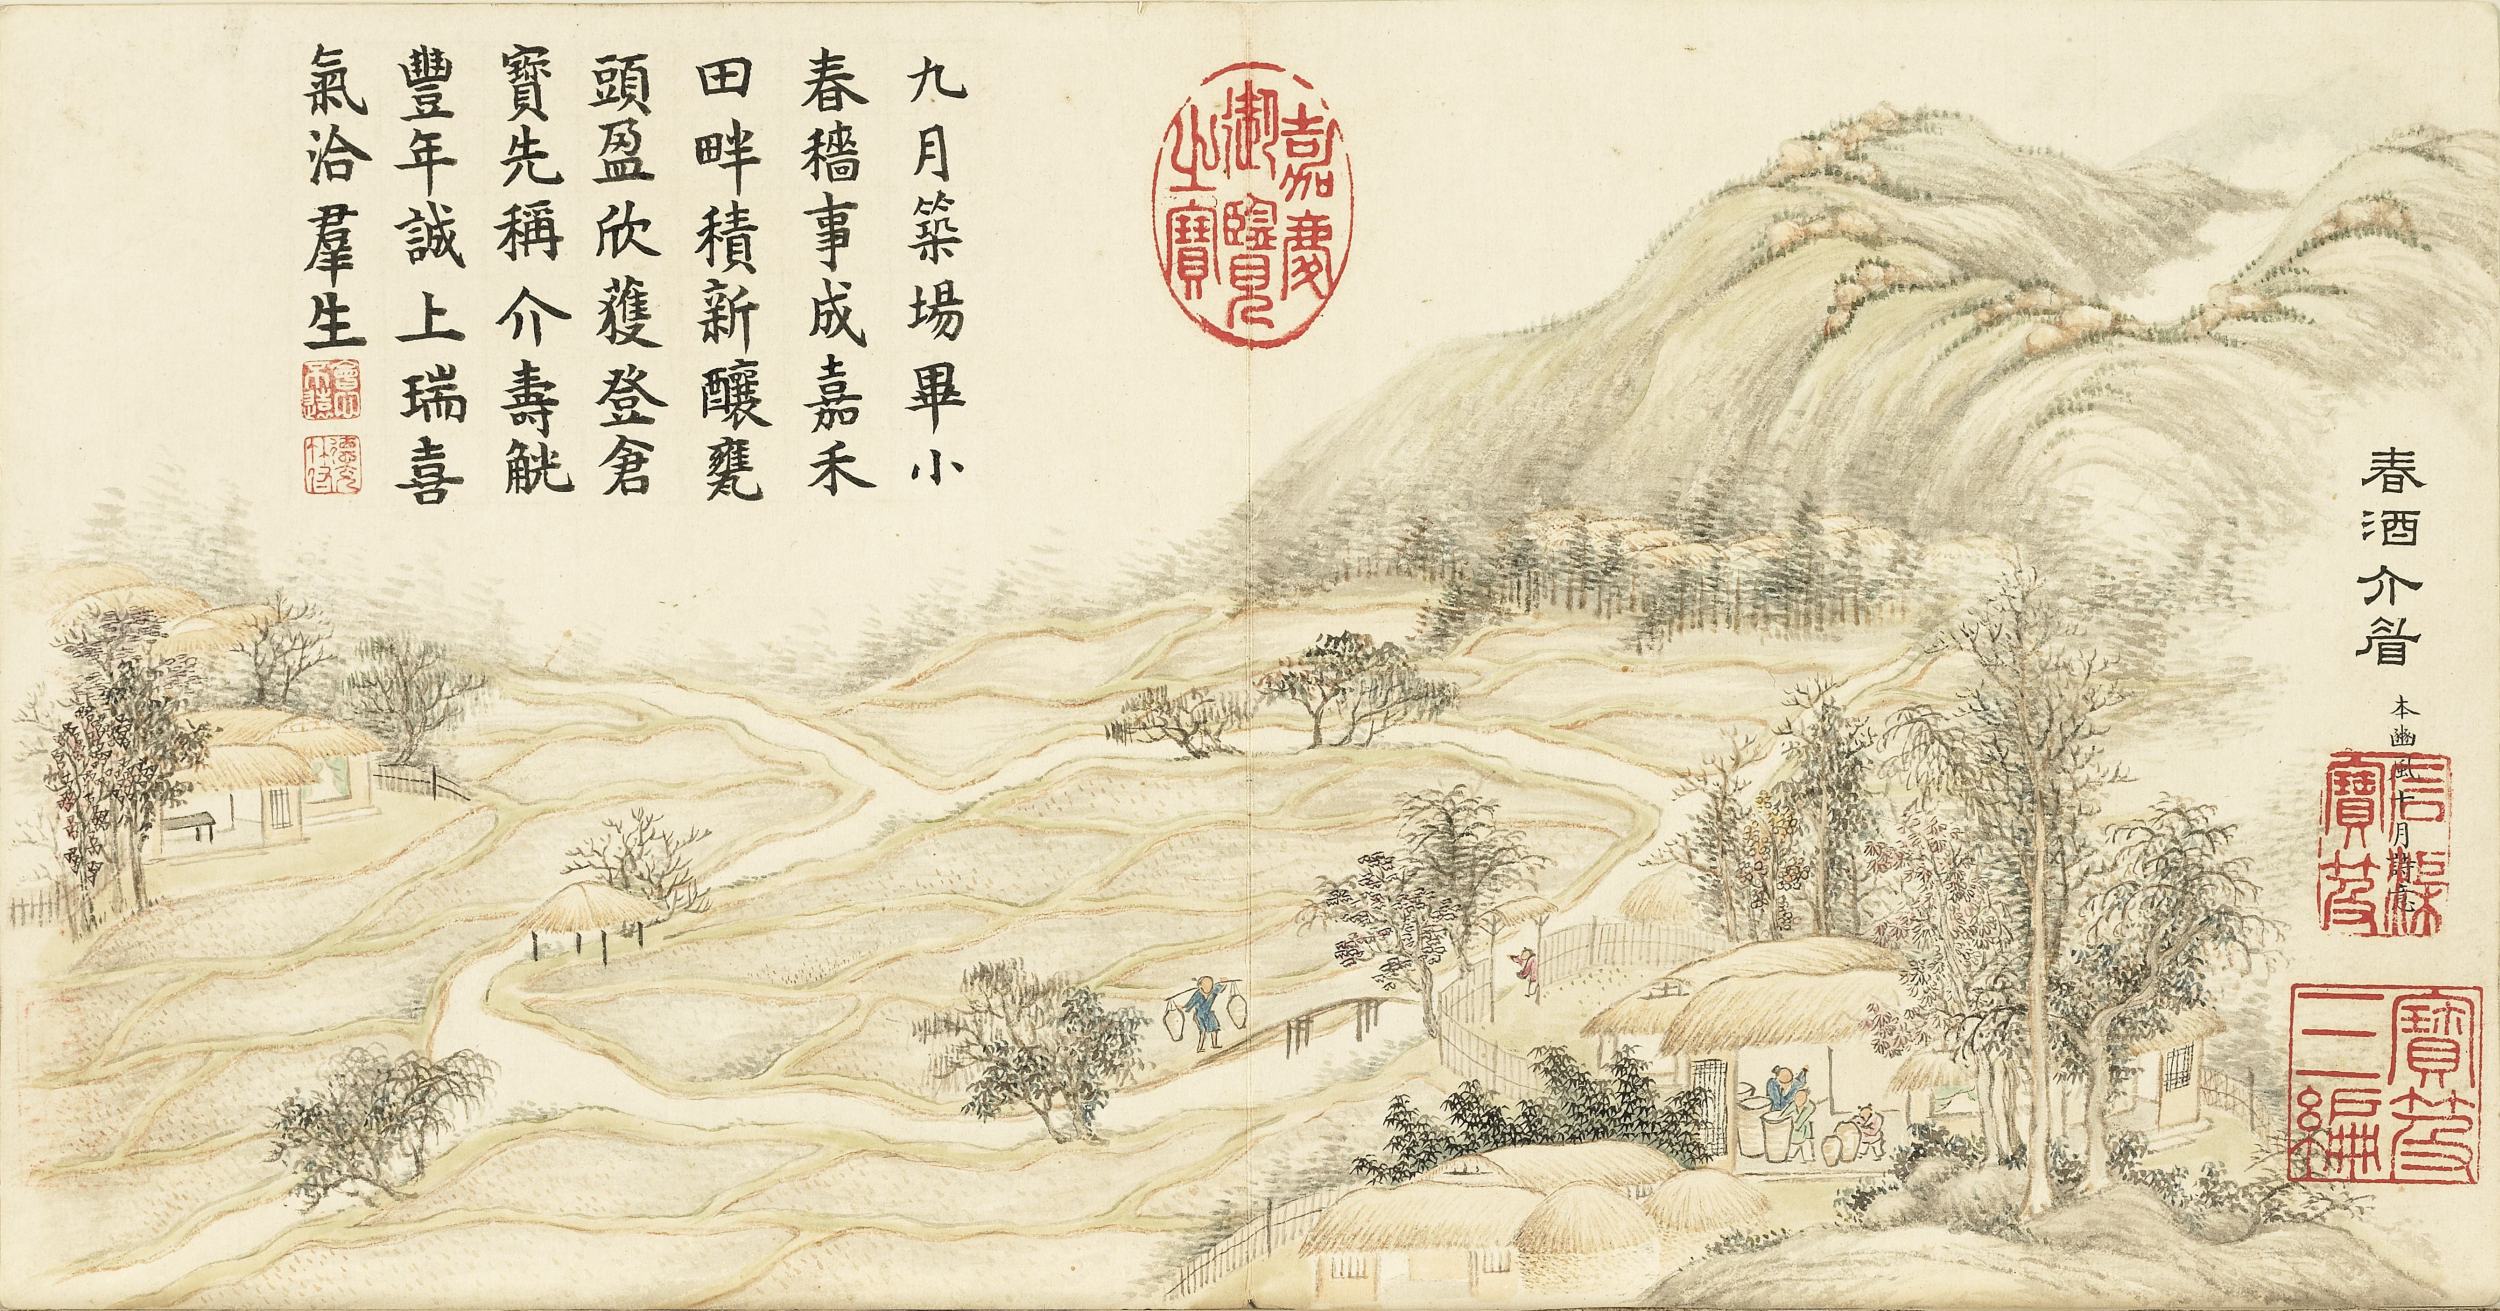 春酒介眉
本豳風七月詩意
石渠寶笈
寶笈三編
嘉慶御覽之寶
九月築場畢小
春穡事成嘉禾
田畔積新釀甕
頭盈欣獲登倉
寶先稱介壽觥
豐年誠上瑞喜
氣洽羣生
會心不遠
德充符